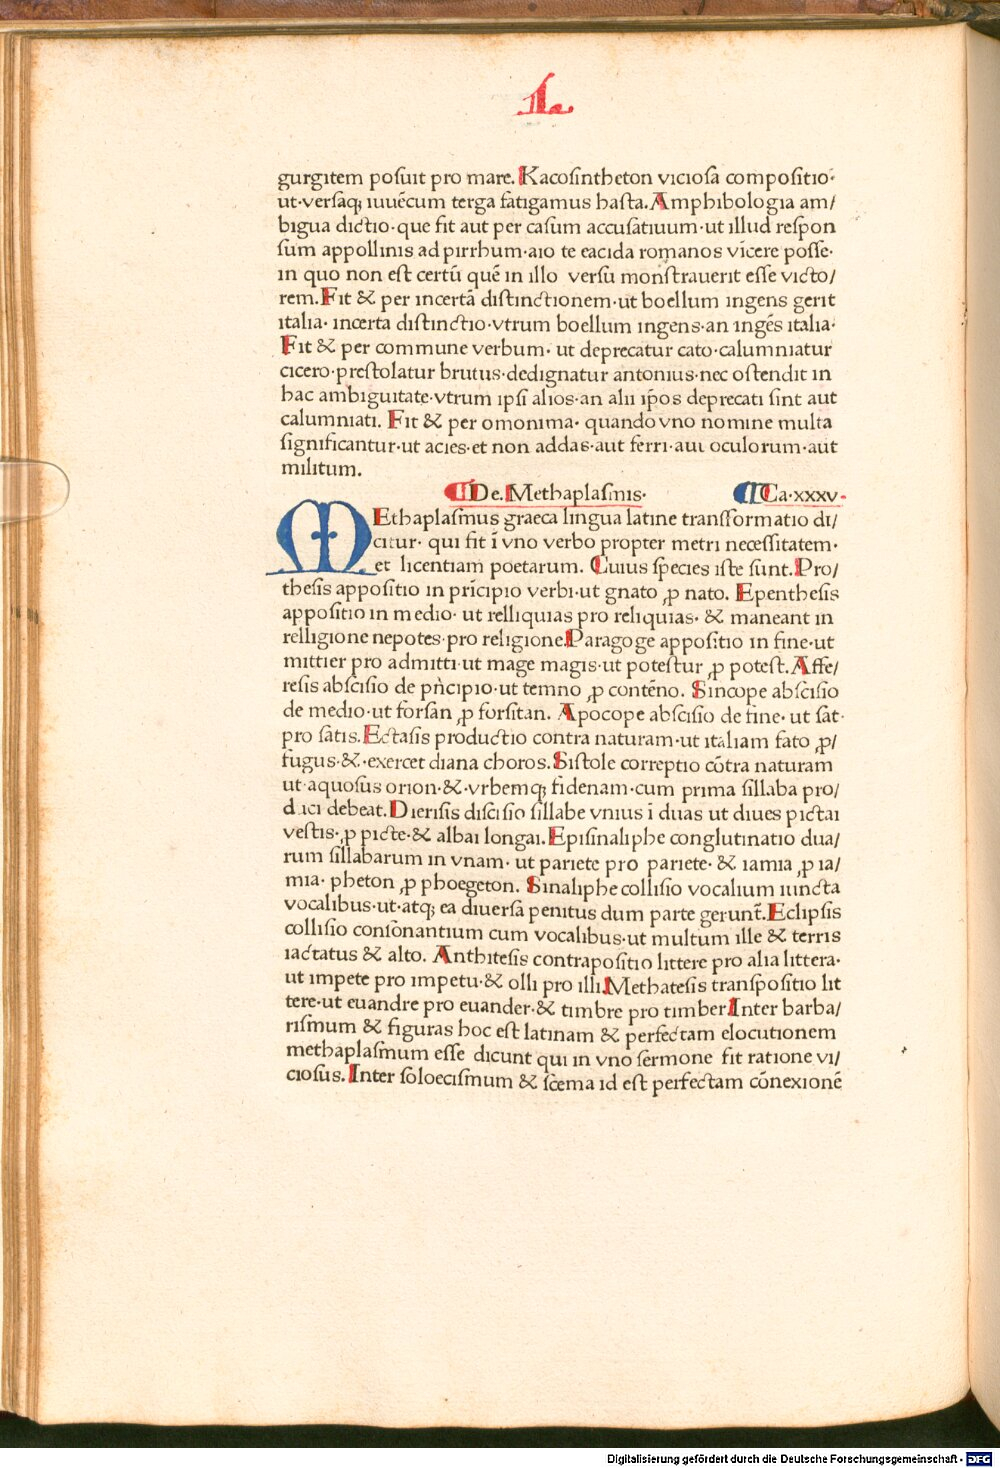 1.
gurgitem posuit pro mare. Kacosintheton viciosa compositio·
ut·versaqꝫ iuuēcum terga fatigamus hasta. Amphibologia am/
bigua dictio·que fit aut per casum accusatiuum·ut illud respon
sum appollinis ad pirrhum·aio te eacida romanos vīcere posse·
in quo non est certū quē in illo versu monstrauerit esse victo/
rem. Fit & per incertā distinctionem·ut boellum ingens gerit
italia· incerta distinctio·vtrum boellum ingens·an ingēs italia·
Fit & per commune verbum· ut deprecatur cato·calumniatur
cicero·prestolatur brutus·dedignatur antonius·nec ostendit in
hac ambiguitate·vtrum ipsi alios·an alii ip̄os deprecati sint aut
calumniati. Fit & per omonima· quando vno nomine multa
significantur·ut acies·et non addas·aut ferri·aut oculorum·aut
militum.
De. Methaplasmis· Ca·xxxv·
MEthaplasmus graeca lingua latine transformatio di/
citur· qui fit ī vno verbo propter metri necessitatem·
et licentiam poetarum. Cuius species iste sunt. Pro/
thesis appositio in prīcipio verbi·ut gnato ꝓ nato. Epenthesis
appositio in medio· ut relliquias pro reliquias· & maneant in
relligione nepotes·pro religione. Paragoge appositio in fine·ut
mittier pro admitti·ut mage magis·ut potestur ꝓ potest. Affe/
resis abscisio de prīcipio·ut temno ꝓ contēno. Sincope abscisio
de medio·ut forsan ꝓ forsitan. Apocope abscisio de fine· ut sat·
pro satis. Ectasis productio contra naturam·ut italiam fato ꝓ/
fugus·&·exercet diana choros. Sistole correptio cōtra naturam
ut·aquosus orion·&·vrbemqꝫ fidenam·cum prima sillaba pro/
duci debeat. Dierisis discisio sillabe vnius ī duas ut diues pictai
vestis·ꝓ picte·& albai longai. Episinaliphe conglutinatio dua/
rum sillabarum in vnam· ut pariete pro pariete· & iamia ꝓ ia/
mia· pheton ꝓ phoegeton. Sinaliphe collisio vocalium iuncta
vocalibus·ut·atqꝫ ea diuersa penitus dum parte gerunt̄. Eclipsis
collisio consonantium cum vocalibus·ut multum ille & terris
iactatus & alto. Anthitesis contrapositio littere pro alia littera·
ut impete pro impetu·& olli pro illi. Methatesis transpositio lit
tere·ut euandre pro euander·& timbre pro timber. Inter barba/
rismum & figuras hoc est latinam & perfectam elocutionem
methaplasmum esse dicunt qui in vno sermone fit ratione vi/
ciosus. Inter soloecismum & scema id est perfectam cōnexionē
Digitalisierung gefördert durch die Deutsche Forschungsgemeinschaft - DFG